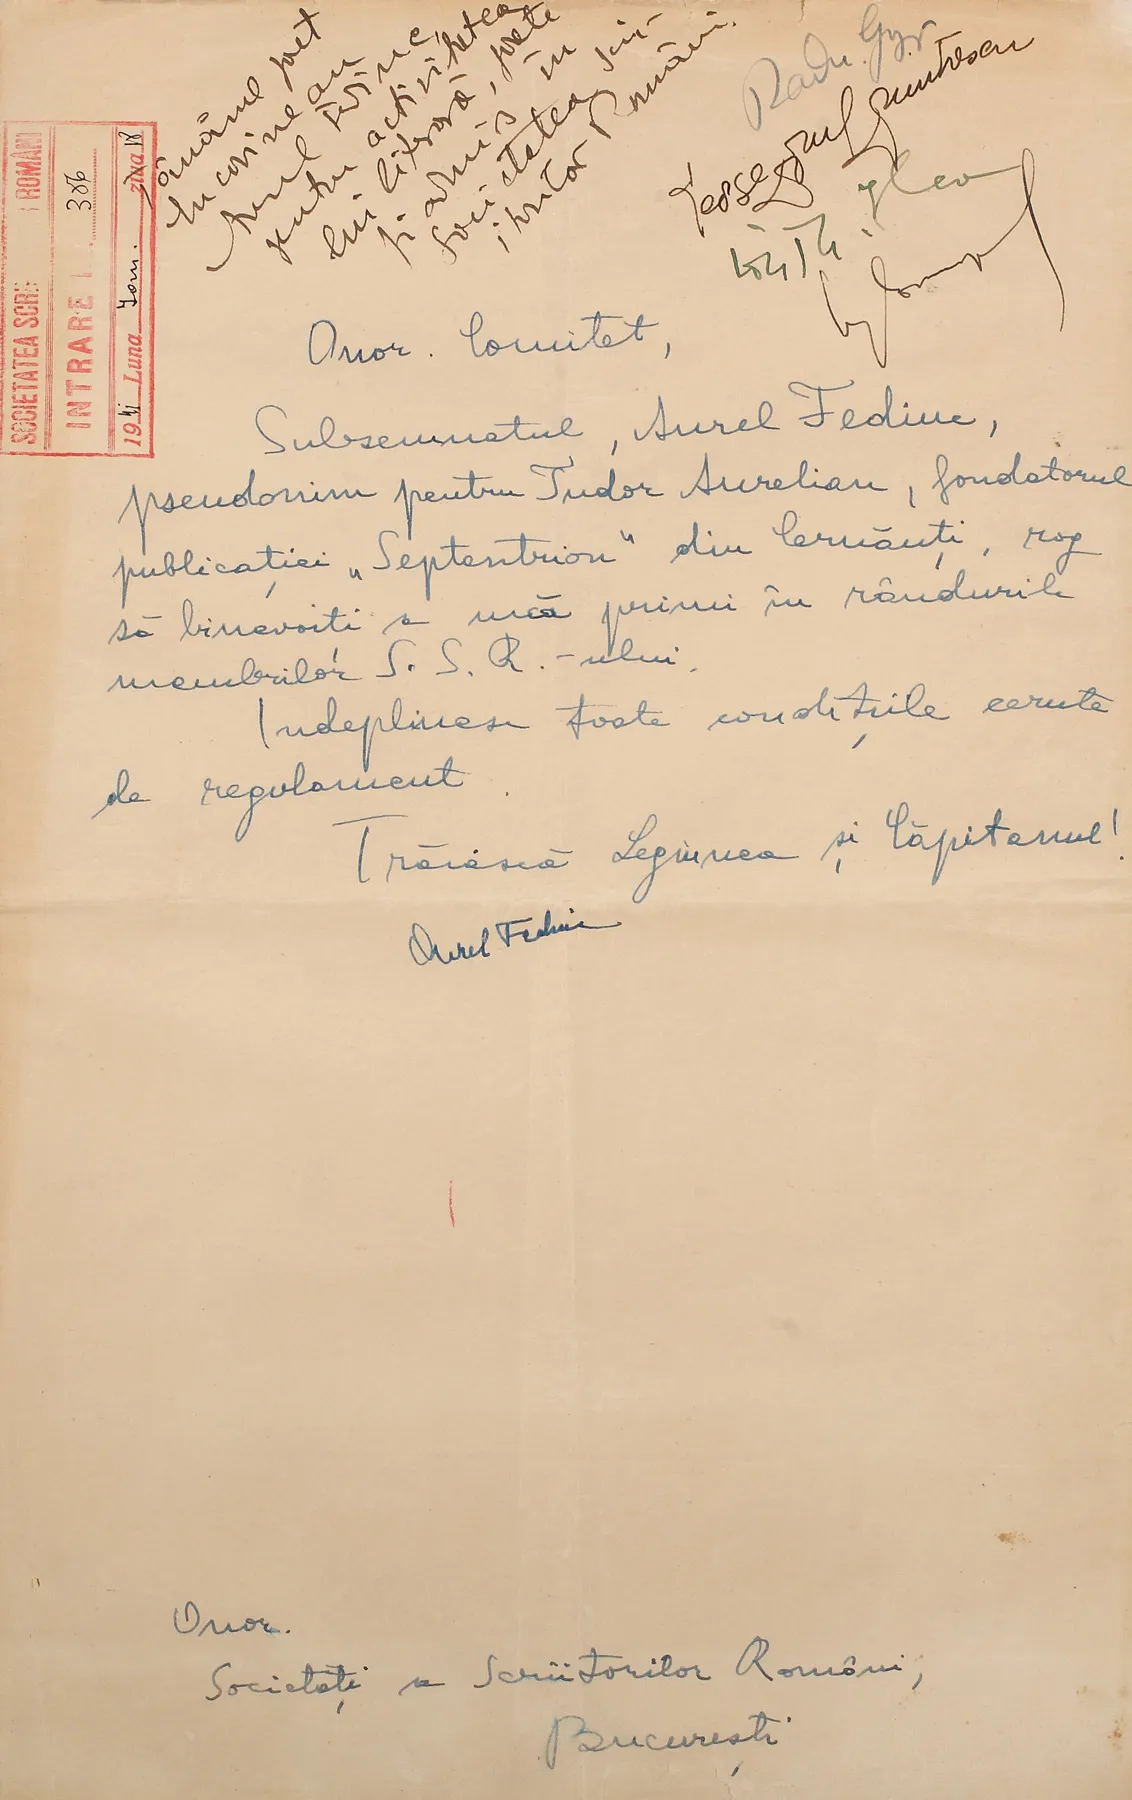 SOCIETATEA SCRI I ROMÂNI
INTRARE 386
1941 Luna Ian. ziua 18
tânărul poet
bucovinean
Aurel Fediuc,
pentru activitatea
lui literară, poate
fi admis în
Societatea scri-
itorilor Români.
Radu Gyr
Onor. Comitet,
Subsemnatul, Aurel Fediuc,
pseudonim pentru Tudor Aurelian, fondatorul
publicației „Septentrion" din Cernăuți, rog
să binevoiti a mă primi în rândurile
membrilor S. S. R.-ului.
Indeplinesc toate condițiile cerute
de regulament.
Trăiască Legiunea și Căpitanul!
Aurel Fediuc
Onor.
Societăți a Scriitorilor Români,
București